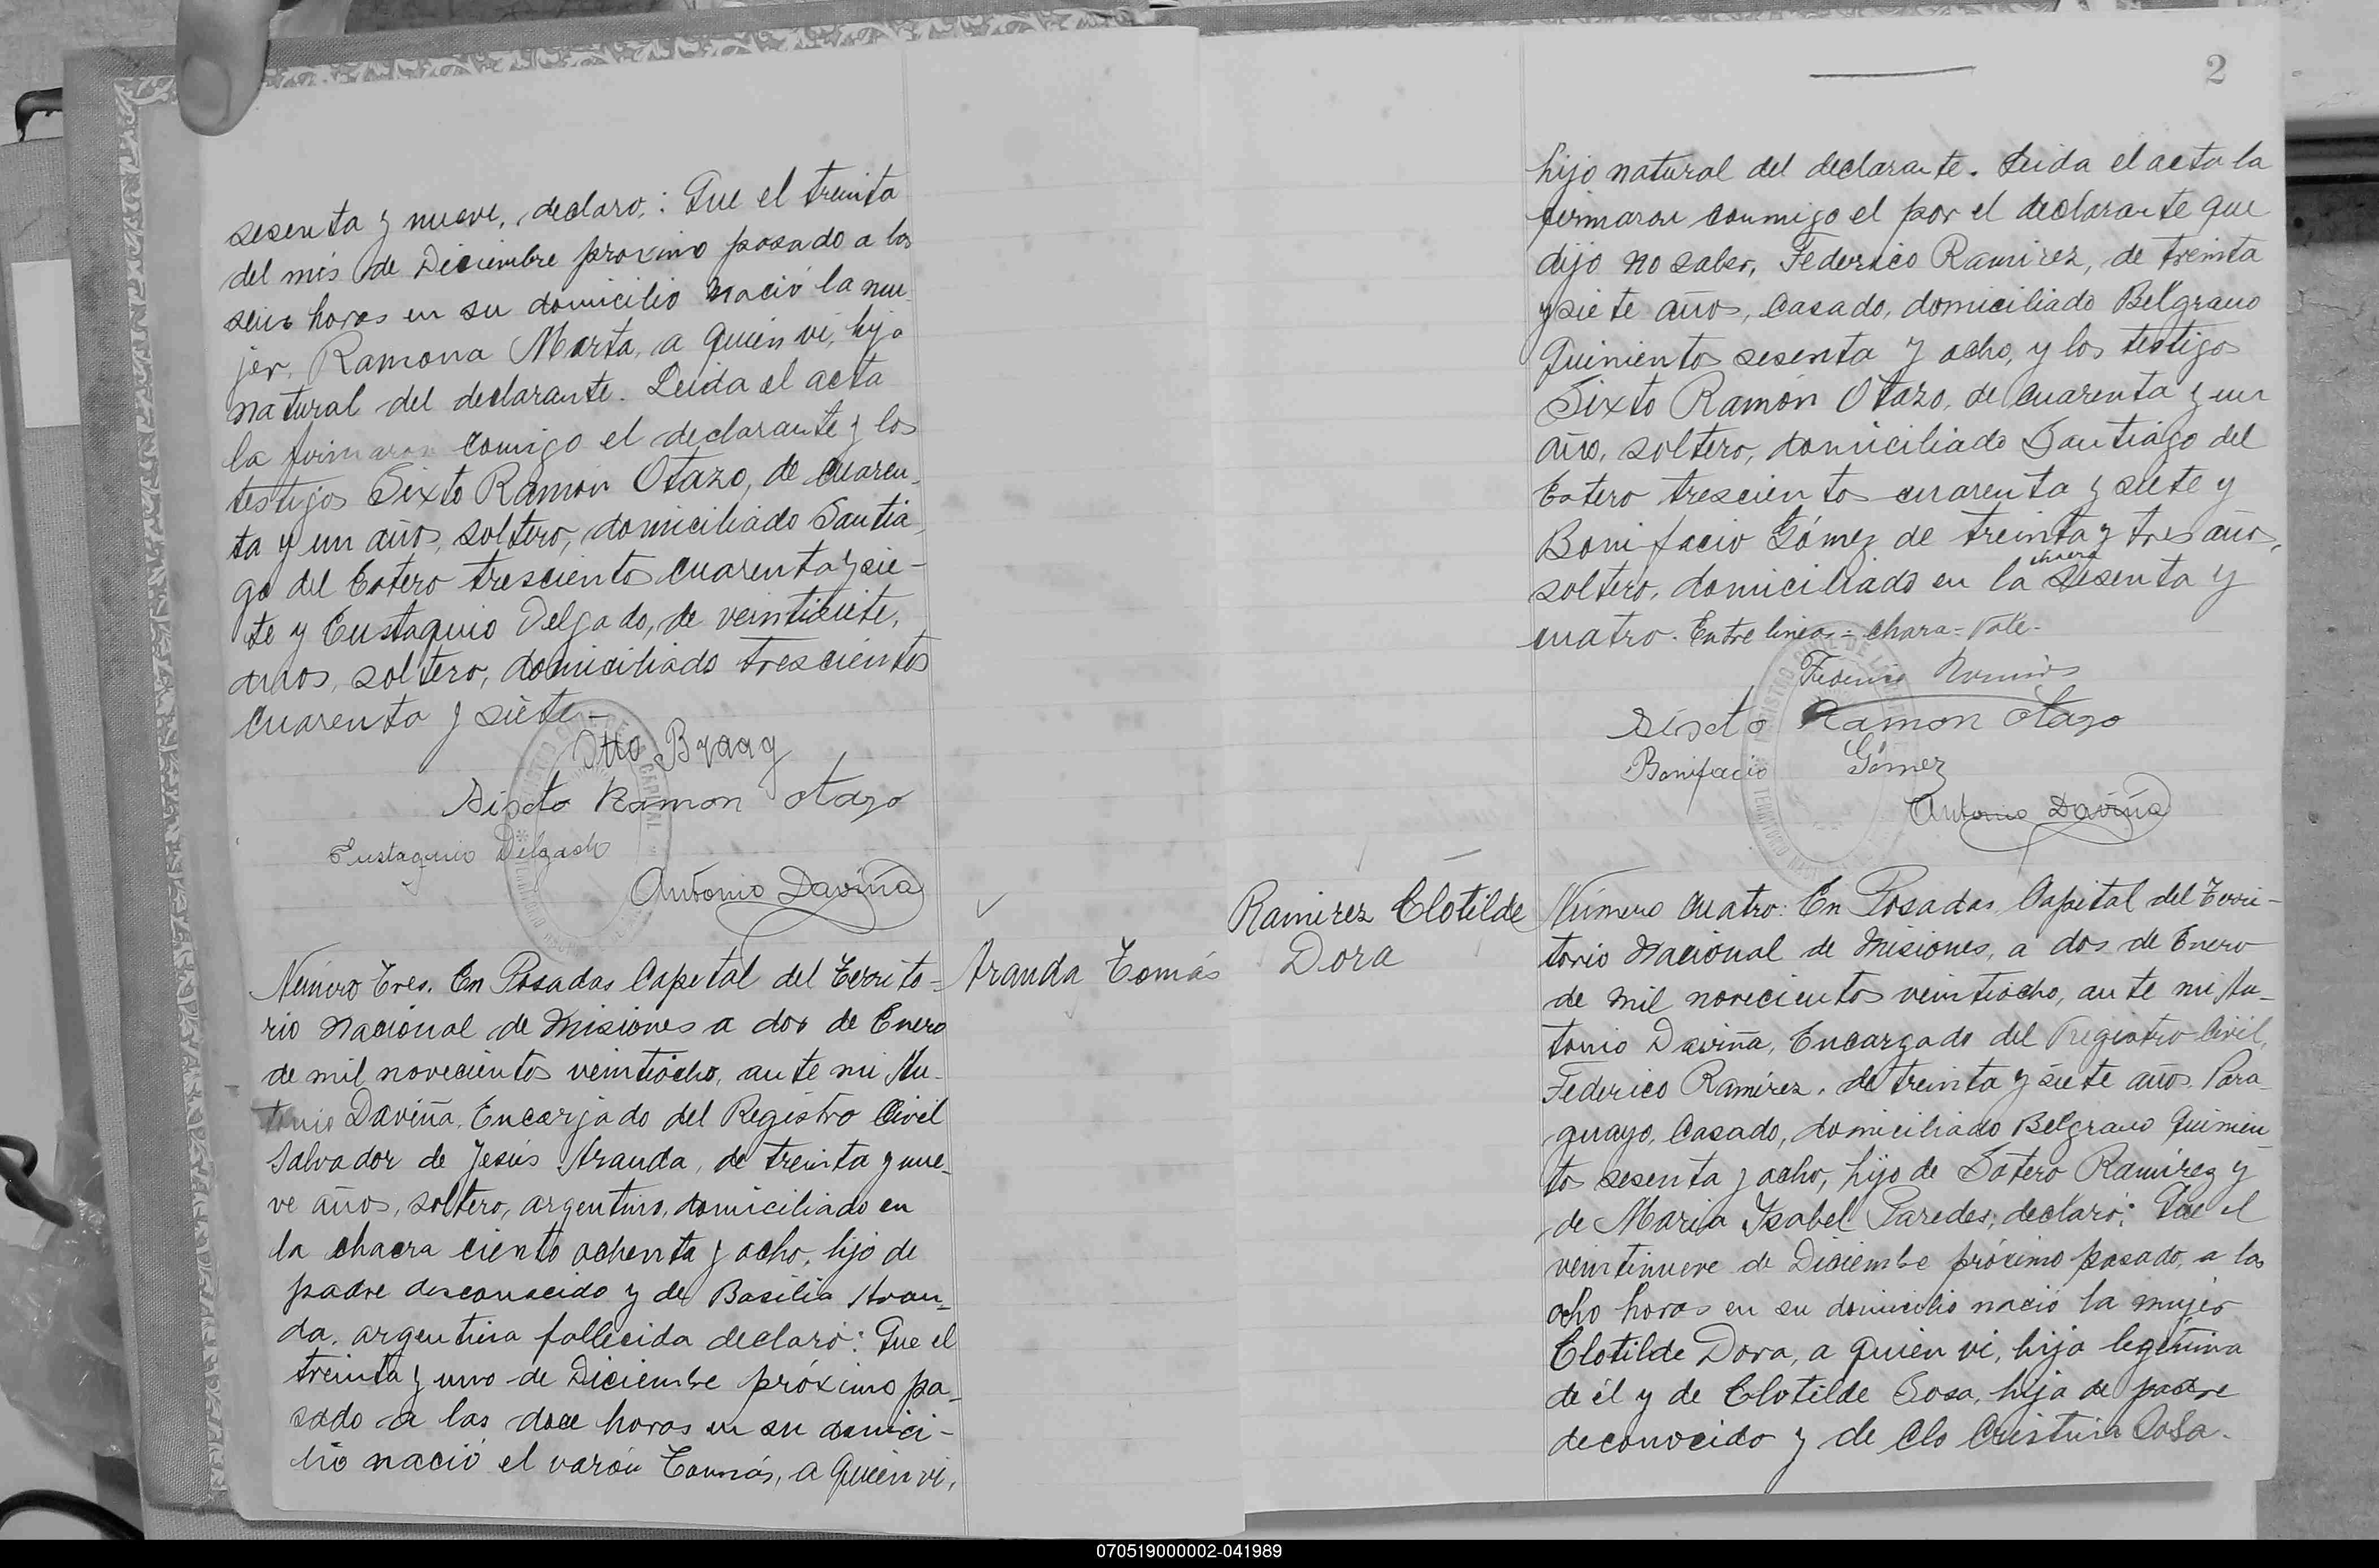 sesenta y nueve, declaro,: Que el treinta
del més de Diciembre proximo pasado a las
seis horas en su domicilio nació la mu-
jer, Ramona Marta, a quien vi, hija
natural del declarante. Leida el acta
la firmaron comigo el declarante y los
testigos Sixto Ramón Otazo, de cuaren-
ta y un años, soltero, domiciliado Santia-
go del Estero trescientos cuarenta y sie-
te y Eustaquio Delgado, de veintisiete,
años, soltero, domiciliado trescientos
cuarenta y siete-
Otto Braag
Sixto Ramon Otazo
Eustaquio Delgado
Antonio Daviña
Número Tres. En Posadas Capital del Territo-
rio Nacional de Misiones a dos de Enero
de mil novecientos veintiocho, ante mi An-
tonio Daviña, Encargado del Registro Civil
Salvador de Jesús Aranda, de treinta y nue-
ve años, soltero, argentino, domiciliado en
la chacra ciento ochenta y ocho, hijo de
padre desconocido y de Basilia Aran-
da, argentina fallecida declaró: Que el
treinta y uno de Diciembre próximo pa-
sado a las doce horas en su domici-
lio nació el varón Tomás, a quien vi,
Aranda Tomás
2
hijo natural del declarante. Leida el acta la
firmaron conmigo el por el declarante que
dijo no saber, Federico Ramirez, de treinta
y siete años, casado, domiciliado Belgrano
quinientos sesenta y ocho, y los testigos
Sixto Ramón Otazo, de cuarenta y un
año, soltero, domiciliado Santiago del
Estero trescientos cuarenta y siete y
Bonifacio Gómez de treinta y tres años,
soltero, domiciliado en la sesenta y
cuatro. Entre lineas = chara = Vale-
Federico Ramires
Sixto Ramon Otazo
Bonifacio Gómez
Antonio Daviña
Ramirez Clotilde
Dora
Número cuatro: En Posadas, Capital del Terri-
torio Nacional de Misiones, a dos de Enero
de mil novecientos veintiocho, ante mi An-
tonio Daviña, Encargado del Registro Civil,
Federico Ramírez, de treinta y siete años. Para-
guayo, casado, domiciliado Belgrano quinien
tos sesenta y ocho, hijo de Sotero Ramírez y
de Maria Ysabel Paredes, declaró: Que el
veintinueve de Diciembe próximo pasado, a las
ocho horas en su domicilio nació la mujer
Clotilde Dora, a quien vi, hija legítima
de él y de Clotilde Sosa, hija de padre
deconocido y de Clo Cristina Sosa.
070519000002-041989